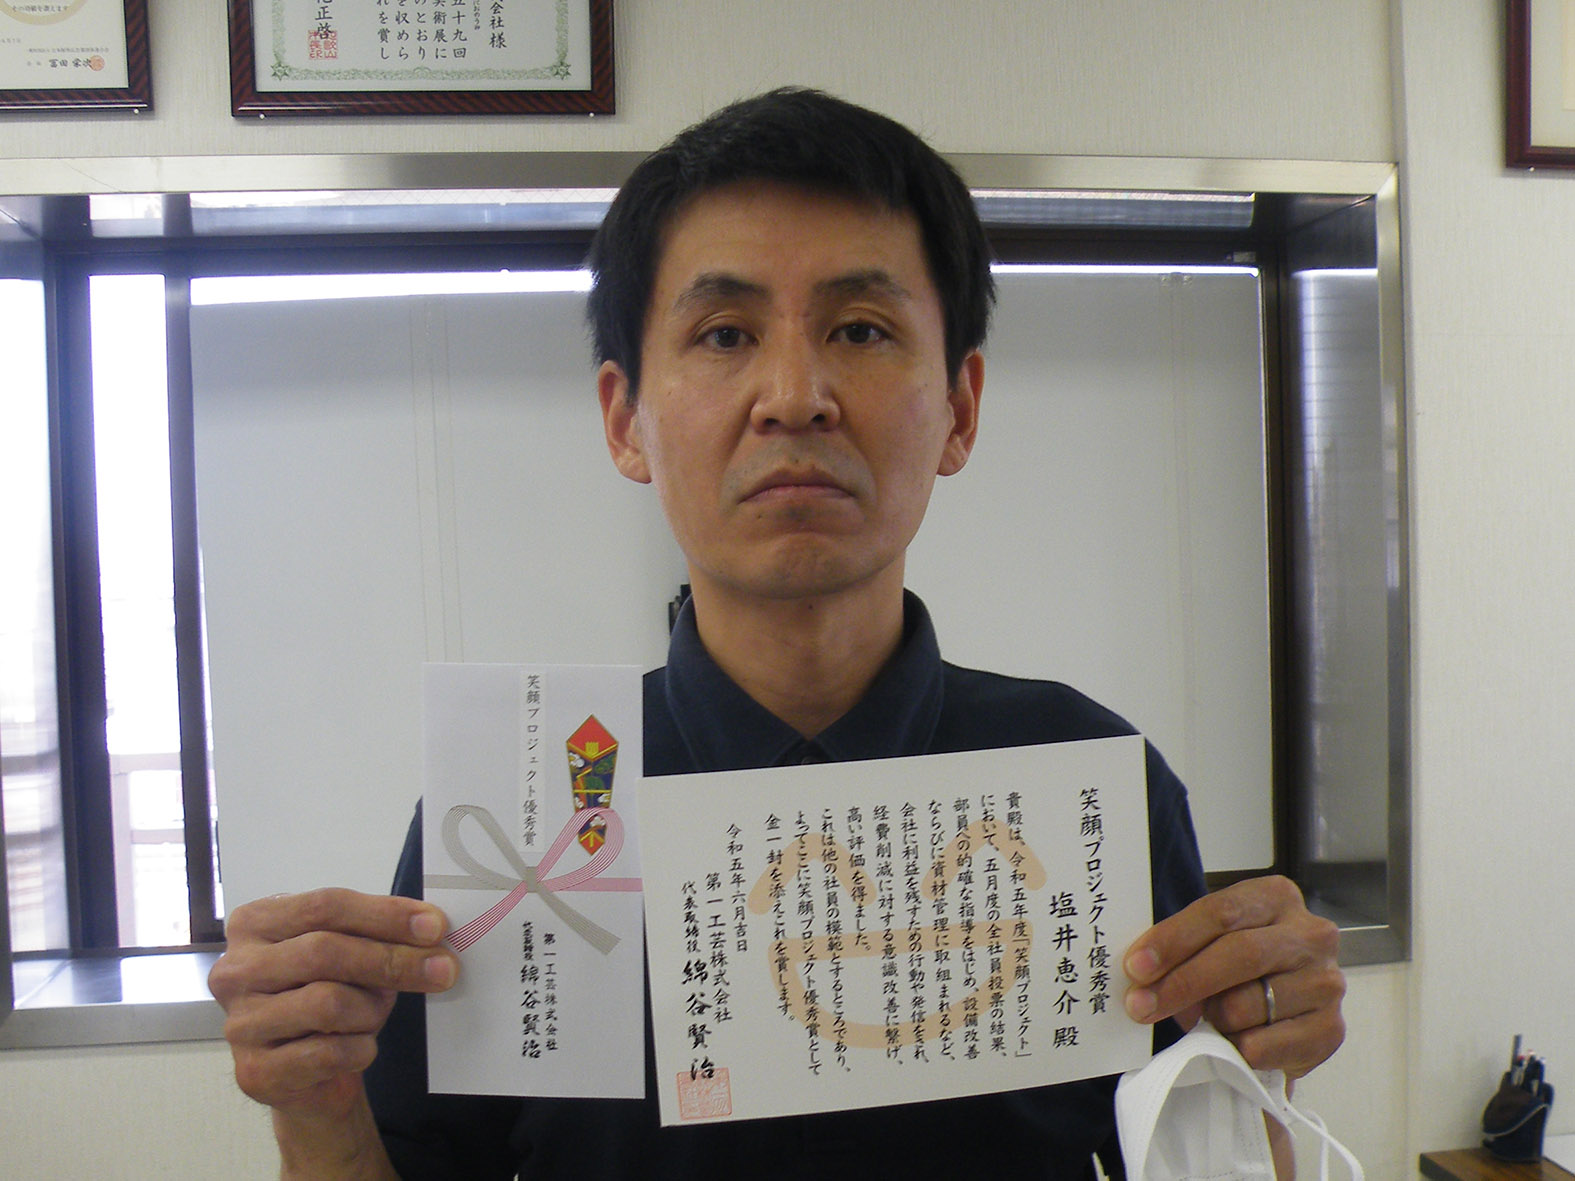 会社様
五十九回
美術展に
のとおり
を収めら
れを賞し
冨田 栄次
笑顔プロジェクト優秀賞
第一工芸株式会社
代表取締役 綿谷賢治
笑顔プロジェクト優秀賞
塩井恵介 殿
貴殿は、令和五年度「笑顔プロジェクト」
において、五月度の全社員投票の結果、
部員への的確な指導をはじめ、設備改善
ならびに資材管理に取組まれるなど、
会社に利益を残すための行動や発信をされ、
経費削減に対する意識改善に繋げ、
高い評価を得ました。
これは他の社員の模範とするところであり、
よってここに笑顔プロジェクト優秀賞として
金一封を添えこれを賞します。
令和五年六月吉日
第一工芸株式会社
代表取締役 綿谷賢治